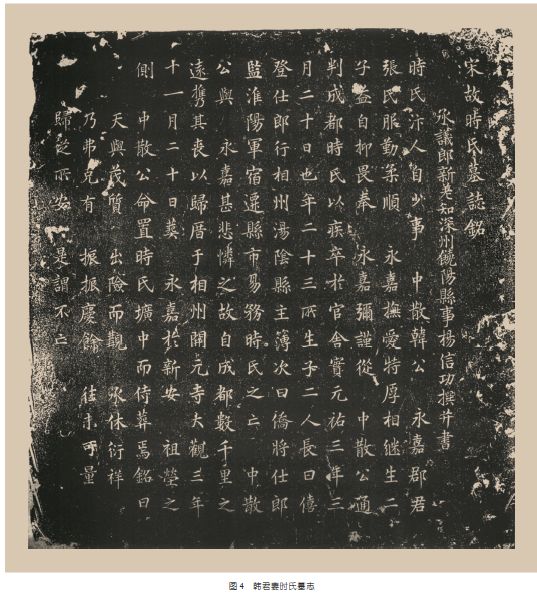 宋故時氏墓誌銘
承議郎新差知深州饒陽縣事楊信功撰并書
時氏汴人自少事 中散韓公 永嘉郡君
張氏服勤柔順 永嘉撫愛特厚相繼生二
子益自抑畏奉 永嘉彌謹從 中散公通
判成都時氏以疾卒於官舍實元祐三年三
月二十日也年二十三所生子二人長曰僖
登仕郎行相州湯陰縣主簿次曰僑將仕郎
監淮陽軍宿遷縣市易務時氏之亡 中散
公與 永嘉甚悲憐之故自成都數千里之
遠携其喪以歸厝于相州開元寺大觀三年
十一月二十日葬 永嘉於新安 祖塋之
側 中散公命置時氏壙中而侍葬焉銘曰
天與茂質 出險而觀 承休衍祥
乃弗克有 振振慶餘 往未可量
歸從所安 是謂不亡
图4 韩君妾时氏墓志